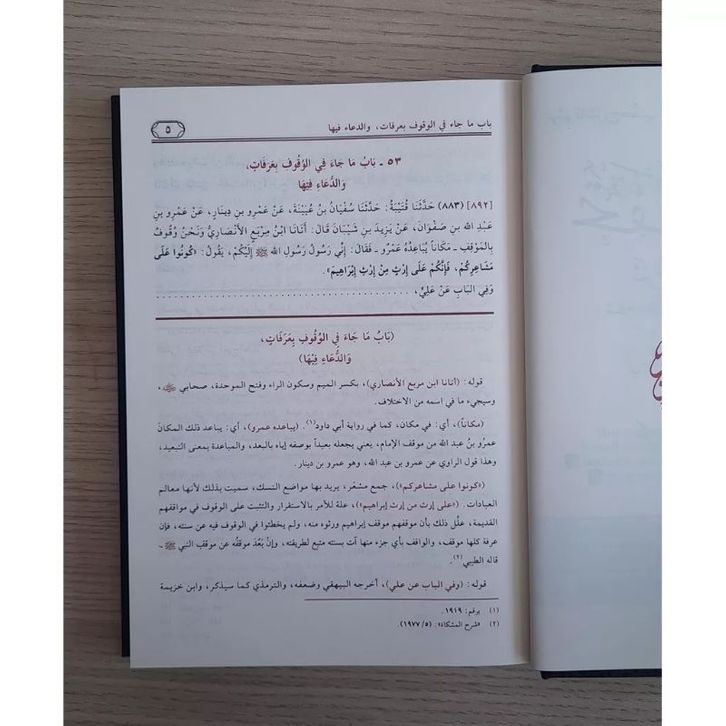 باب ما جاء في الوقوف بعرفات، والدعاء فيها
٥
٥٣ ـ بَابُ مَا جَاءَ فِي الوُقُوفِ بِعَرَفَاتٍ،
وَالدُّعَاءِ فِيْهَا
[٨٩٢] (٨٨٣) حَدَّثَنَا قُتَيْبَةُ: حَدَّثَنَا سُفْيَانُ بنُ عُيَيْنَةَ، عَنْ عَمْرِو بنِ دِينَارٍ، عَنْ عَمْرِو بنِ
عَبْدِ الله بنِ صَفْوَانَ، عَنْ يَزِيدَ بنِ شَيْبَانَ قَالَ: أَتَانَا ابْنُ مِرْبَعٍ الأَنْصَارِيُّ وَنَحْنُ وُقُوفٌ
بِالمَوْقِفِ ـ مَكَاناً يُبَاعِدُهُ عَمْرٌو ـ فَقَالَ: إِنِّي رَسُولُ رَسُولِ الله ﷺ إِلَيْكُمْ، يَقُولُ: «كُونُوا عَلَى
مَشَاعِرِكُمْ، فَإِنَّكُمْ عَلَى إِرْثٍ مِنْ إِرْثِ إِبْرَاهِيمَ».
وَفِي البَابِ عَنْ عَلِيٍّ،
(بَابُ مَا جَاءَ فِي الوُقُوفِ بِعَرَفَاتٍ،
وَالدُّعَاءِ فِيْهَا)
قوله: (أتانا ابن مربع الأنصاري)، بكسر الميم وسكون الراء وفتح الموحدة، صحابي ﷺ،
وسيجيء ما في اسمه من الاختلاف.
(مكاناً)، أي: في مكان، كما في رواية أبي داود(١). (يباعده عمرو)، أي: يباعد ذلك المكانَ
عمرُو بنُ عبد الله من موقف الإمام، يعني يجعله بعيداً بوصفه إياه بالبعد، والمباعدة بمعنى التبعيد،
وهذا قول الراوي عن عمرو بن عبد الله، وهو عمرو بن دينار.
(«كونوا على مشاعركم»)، جمع مشعَر، يريد بها مواضع النسك، سميت بذلك لأنها معالم
العبادات. («على إرث من إرث إبراهيم»)، علة للأمر بالاستقرار والتثبت على الوقوف في مواقفهم
القديمة، علَّل ذلك بأن موقفهم موقف إبراهيم ورثوه منه، ولم يخطئوا في الوقوف فيه عن سنته، فإن
عرفة كلها موقف، والواقف بأي جزء منها آت بسنته متبع لطريقته، وإنْ بَعُدَ موقفُه عن موقف النبي ﷺ ـ
قاله الطيبي(٢).
قوله: (وفي الباب عن علي)، أخرجه البيهقي وضعفه، والترمذي كما سيذكر، وابن خزيمة
(١) برقم: ١٩١٩.
(٢) «شرح المشكاة»: (٥/ ١٩٧٧).